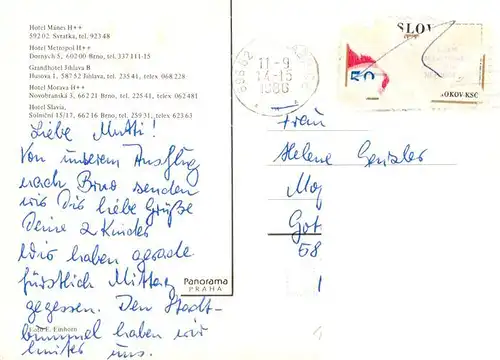 Hotel Mánes H++
592 02 Svratka, tel. 923 48
Hotel Metropol H++
Dornych 5, 602 00 Brno, tel. 337 111-15
Grandhotel Jihlava B
Husova 1, 587 52 Jihlava, tel. 235 41, telex 068 228
Hotel Morava H++
Novobranská 3, 662 21 Brno, tel. 275 26, telex 062 481
Hotel Slavia,
Solniční 15/17, 662 16 Brno, tel. 259 31, telex 62 363
Liebe Mutti!
Von unserem Ausflug
nach Brno senden
wir Dir liebe Grüße
Deine 2 Kinder
Wir haben gerade
fürstlich Mittag
gegessen. Den Stadt-
bummel haben wir
hinter uns.
E. Einhorn
Panorama
PRAHA
11-9
14-15
1986
SLOV
OKOV-KSČ
Frau
Helene
Got
58